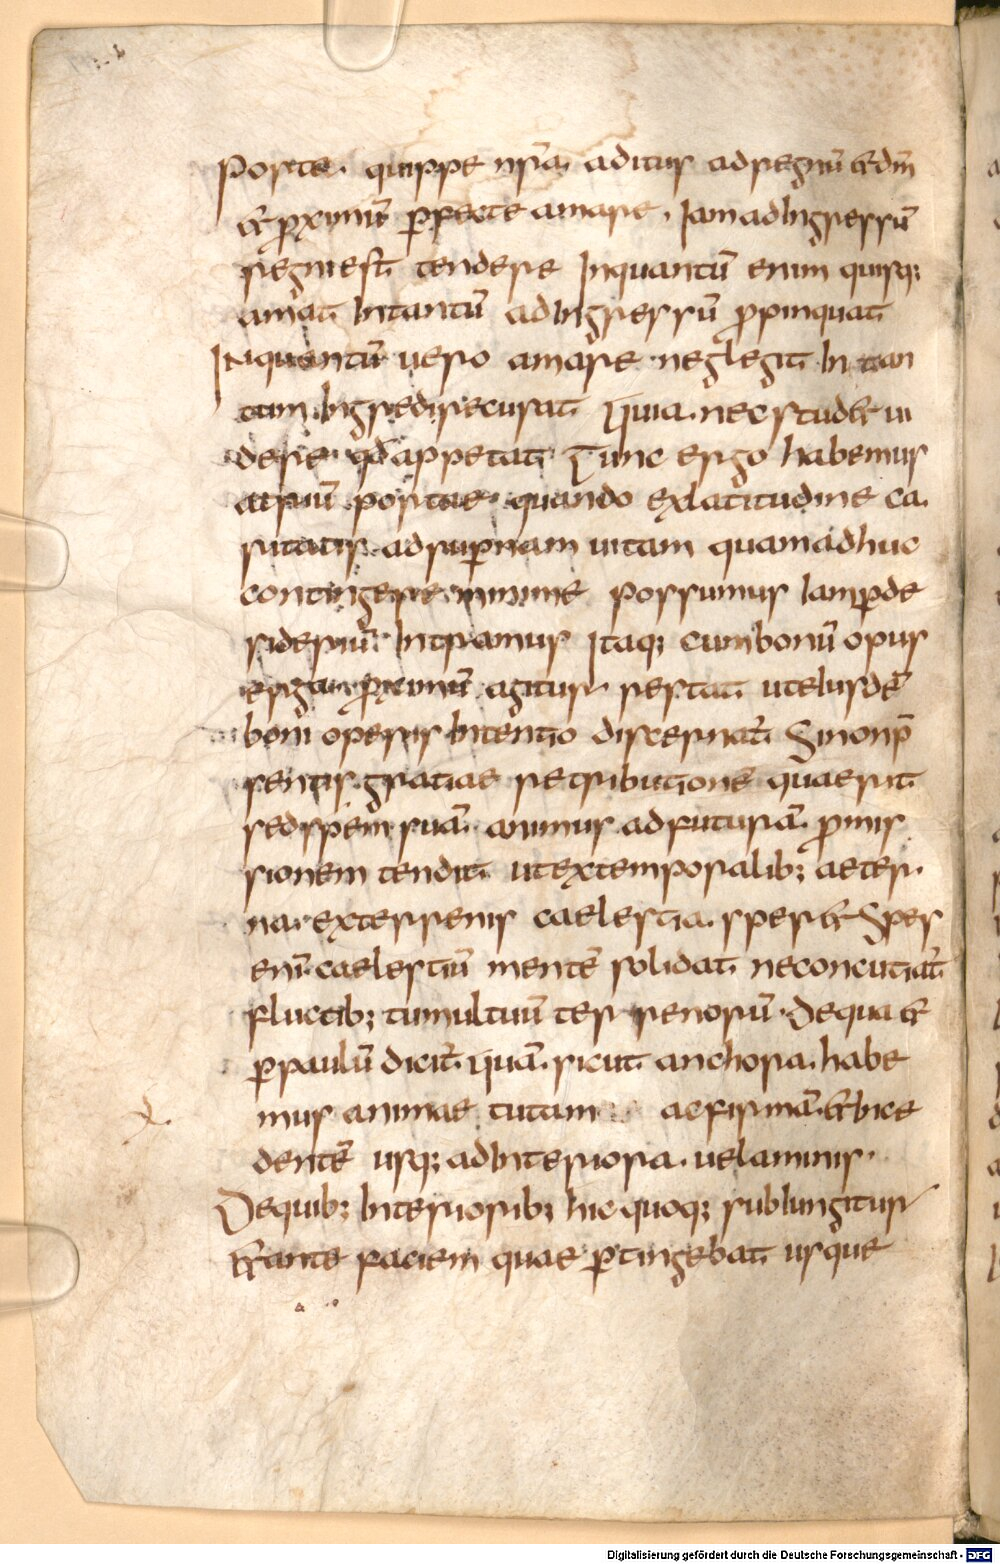 Portae. quippe nr̄a. aditus ad regnū & dm̄
& ꝓximū ꝑfecte amare. Iam ad Ingressū
regni est̄ tendere Inquantū enim quisq;
amat Intantū ad Ingressū ꝓpinquat
Inquantū uero amare neglegit In tan
tum. Ingredi recusat Quia. nec stud& ui
dere qd̄ appetat Tunc ergo habemus
atriū portae. quando ex latitudine ca
ritatis. ad suꝑnam uitam quam adhuc
contingere minime possumus Iam ꝑ de
sideriū Intramus Itaq; cum bonū opus
erga ꝓximū agitur restat ut eIusdē
boni operis Intentio discernat̄ Si non p̄
sentis. gratiae retributionē quaerit
sed spem suā. animus. ad futurā. ꝓmis
sionem tendit. ut ex temporalib; aeter
na. ex terrenis caelestia. sper& Spes
enī caelestiū mentē solidat ne concutiat̄
fluctib; tumultuū terrenorū. De qua &
ꝑ paulū dicit̄. Quā. sicut anchora. habe
mus animae tutam ac firmā. & Ince
dentē usq; ad Interiora. uelaminis.
De quib; Interiorib; hic quoq; sub Iungitur
& ante faciem quae ꝑtingebat usque
Digitalisierung gefördert durch die Deutsche Forschungsgemeinschaft - DFG